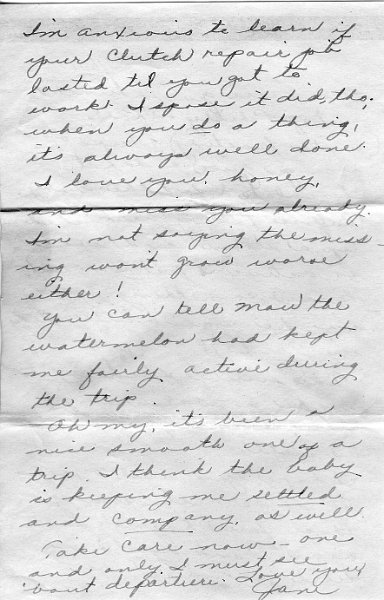 I'm anxious to learn if
your clutch repair job
lasted til you got to
work. I spose it did, tho.
when you do a thing,
it's always well done.
I love you, honey,
and miss you already.
I'm not saying the miss-
ing won't grow worse
either!
You can tell Maw the
watermelon had kept
me fairly active during
the trip.
Oh my, it's been a
nice smooth one of a
trip. I think the baby
is keeping me settled
and company, as well.
Take care now - one
and only. I must see
'bout departure. Love you,
Jane